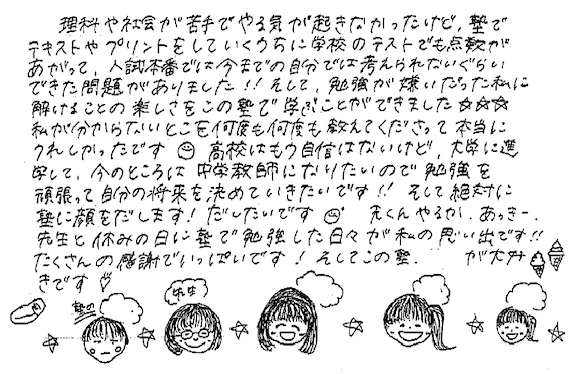 理科や社会が苦手でやる気が起きなかったけど、塾で
テキストやプリントをしていくうちに学校のテストでも点数が
あがって、入試本番では今までの自分では考えられないぐらい
できた問題がありました!!そして、勉強が嫌いだった私に
解けることの楽しさをこの塾で学ぶことができました☆☆☆
私が分からないとこを何度も何度も教えてくださって本当に
うれしかったです 高校はもう自信はないけど、大学に進
学して、今のところは中学教師になりたいので勉強を
頑張って自分の将来を決めていきたいです!!そして絶対に
塾に顔をだします!だしたいです
先生と休みの日に塾で勉強した日々が私の思い出です!!
たくさんの感謝でいっぱいです!そしてこの塾、 が大好
きです♡
塾の
先生